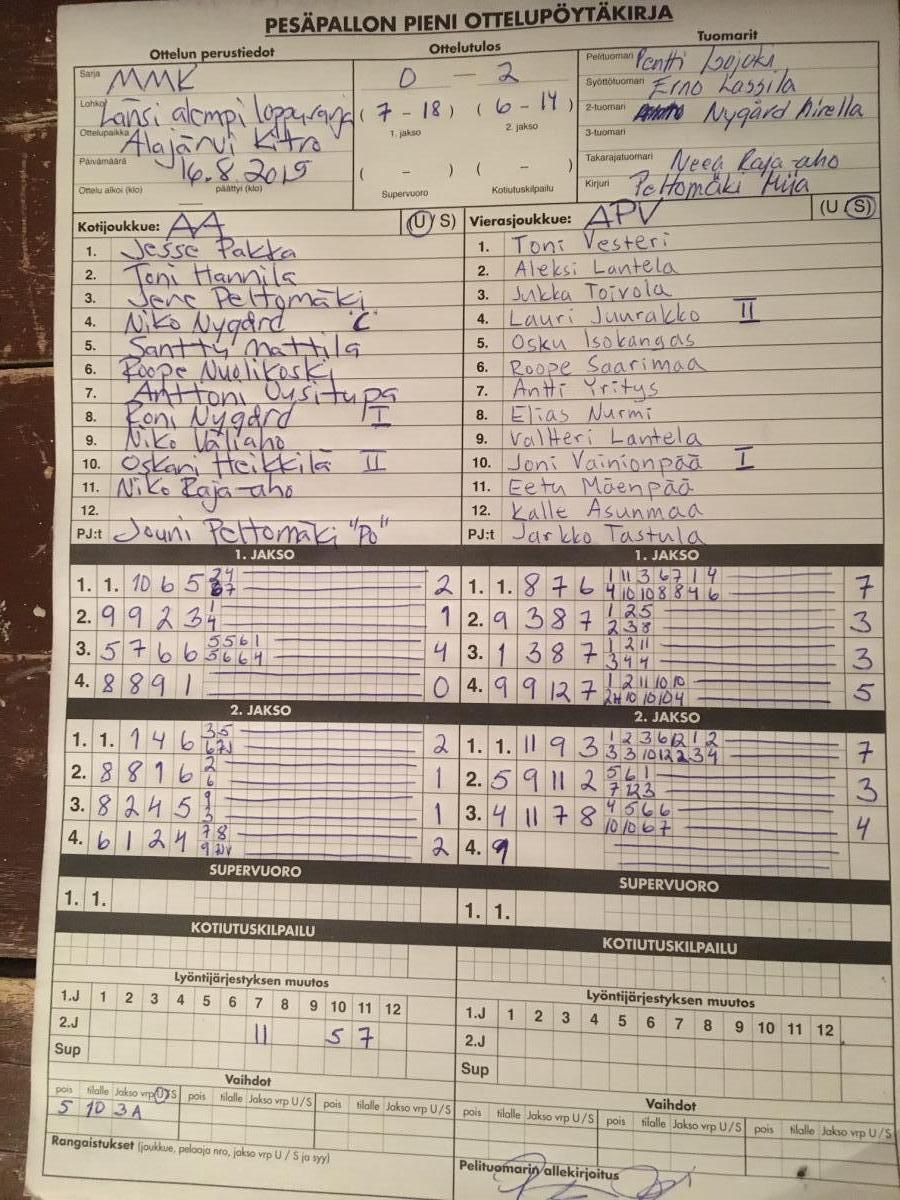 PESÄPALLON PIENI OTTELUPÖYTÄKIRJA
Ottelun perustiedot
Ottelutulos
Tuomarit
Sarja MMK
Lohko Länsi alempi loppusarja
Ottelupaikka Alajärvi Kitro
Päivämäärä 16.8.2015
Ottelu alkoi (klo) päättyi (klo)
0 - 2
( 7 - 18 ) ( 6 - 14 )
1. jakso 2. jakso
( - ) ( - )
Supervuoro Kotiutuskilpailu
Pelituomari Pentti Isojoki
Syöttötuomari Erno Lassila
2-tuomari Nygård Airella
3-tuomari
Takarajatuomari Neea Raja-aho
Kirjuri Peltomäki Miia
Kotijoukkue: AA (U/S)
1. Jesse Pakka
2. Toni Hannila
3. Jere Peltomäki
4. Niko Nygård "C"
5. Santtu Mattila
6. Roope Nuolikoski
7. Anttoni Uusitupa
8. Roni Nygård I
9. Niko Väliaho
10. Oskari Heikkilä II
11. Niko Raja-aho
12.
PJ:t Jouni Peltomäki "Po"
Vierasjoukkue: APV (U/S)
1. Toni Vesteri
2. Aleksi Lantela
3. Jukka Toivola
4. Lauri Juurakko II
5. Osku Isokangas
6. Roope Saarimaa
7. Antti Yritys
8. Elias Nurmi
9. Valtteri Lantela
10. Joni Vainionpää I
11. Eetu Mäenpää
12. Kalle Asunmaa
PJ:t Jarkko Tastula
1. JAKSO
1. 1. 10 6 5 2
2. 9 9 2 3 1 4 1
3. 5 7 6 6 5 5 6 1 5 6 6 4 4
4. 8 8 9 1 0
2. JAKSO
1. 1. 1 4 6 3 5 2
2. 8 8 1 6 2 6 1
3. 8 2 4 5 9 3 1
4. 6 1 2 4 7 8 2
SUPERVUORO
1. 1.
KOTIUTUSKILPAILU
Lyöntijärjestyksen muutos
1.J 1 2 3 4 5 6 7 8 9 10 11 12
2.J 11 5 7
Sup
Vaihdot
pois tilalle Jakso vrp U/S pois tilalle Jakso vrp U/S pois tilalle Jakso vrp U/S
5 10 3A
Rangaistukset (joukkue, pelaaja nro, jakso vrp U / S ja syy)
1. JAKSO
1. 1. 8 7 6 1 11 3 6 7 1 4 4 10 10 8 8 4 6 7
2. 9 3 8 7 1 2 5 2 3 8 3
3. 1 3 8 7 1 2 11 3 4 4 3
4. 9 9 12 7 1 2 11 10 10 5
2. JAKSO
1. 1. 11 9 3 1 2 3 6 12 1 2 3 3 10 12 2 3 4 7
2. 5 9 11 2 5 6 1 7 12 3 3
3. 4 11 7 8 4 5 6 6 10 10 6 7 4
4. 9
SUPERVUORO
1. 1.
KOTIUTUSKILPAILU
Lyöntijärjestyksen muutos
1.J 1 2 3 4 5 6 7 8 9 10 11 12
2.J
Sup
Vaihdot
pois tilalle Jakso vrp U/S pois tilalle Jakso vrp U/S pois tilalle Jakso vrp U/S
Pelituomarin allekirjoitus